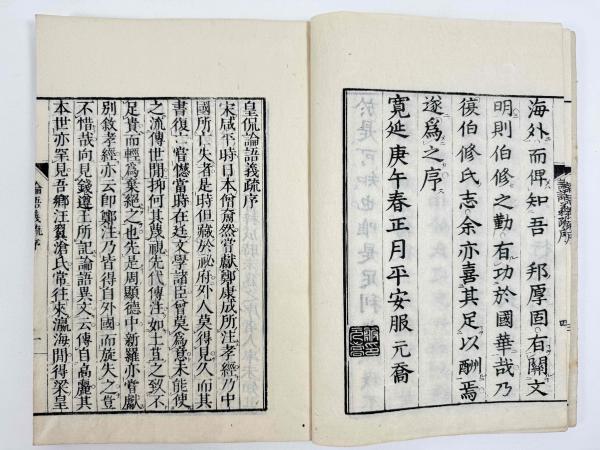 海外而俾知吾 邦厚固有關文
明則伯修之勤有功於國華哉乃
復伯修氏志余亦喜其足以酬焉
遂為之序
寛延庚午春正月平安服元喬
皇侃論語義疏序
宋咸平時日本僧奝然嘗獻鄭康成所注孝經乃中
國所亡失者是時但藏於祕府外人莫得見久而其
書復亡嘗憾當時在廷文學諸臣曾莫為意未能使
之流傳世間抑何其蔑視先代傳注如土苴之致不
足貴而輕為棄絕之也先是周顯德中新羅亦嘗獻
別敘孝經亦云即鄭注乃皆得自外國而旋失之豈
不惜哉向見錢遵王所記論語異文云傳自高麗其
本世亦罕見吾鄉汪翼滄氏常往來瀛海間得梁皇
論語義疏序
一